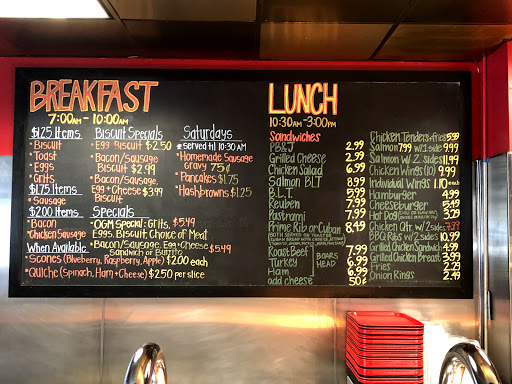 BREAKFAST
7:00am - 10:00am
$1.25 Items
• Biscuit
• Toast
• Eggs
• Grits
$1.75 Items
• Sausage
$2.00 Items
• Bacon
• Chicken Sausage
When Available
• Scones (Blueberry, Raspberry, Apple) $2.00 each
• Quiche (Spinach, Ham + Cheese) $2.50 per slice
Biscuit Specials
• Egg Biscuit $2.50
• Bacon/Sausage
Biscuit $2.99
• Bacon/Sausage
Egg + Cheese $3.99
Biscuit
Specials
• OGM Special: Grits, $5.49
Eggs, Biscuit, Choice of Meat
• Bacon/Sausage, Egg + Cheese $5.49
Sandwich or Burrito
Saturdays
*served til 10:30 AM
• Homemade Sausage
Gravy 75¢
• Pancakes $1.75
• Hashbrowns $1.25
LUNCH
10:30am - 3:00pm
Sandwiches
PB&J 2.99
Grilled Cheese 2.99
Chicken Salad 6.99
Salmon BLT 7.99
B.L.T. 4.99
Reuben 7.99
Pastrami 7.99
Prime Rib or Cuban 8.49
Roast Beef 7.99
Turkey 6.99
Ham 6.99
BOARS
HEAD
add cheese 50¢
Chicken Tenders + fries 5.99
Salmon 7.99 w/ 1 side 9.99
Salmon w/ 2 sides 11.99
Chicken Wings (10) 9.99
Individual Wings 1.10 each
Hamburger 4.99
Cheeseburger 5.49
Hot Dog 3.29
Chicken Qtr w/ 2 sides 7.99
BBQ Ribs w/ 2 sides 10.99
Grilled Chicken Sandwich 4.99
Grilled Chicken Breast 3.99
Fries 2.29
Onion Rings 2.49